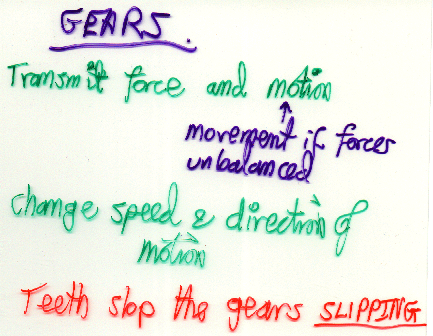 GEARS.
Transmit force and motion
movement if forces
unbalanced
change speed & direction of
motion
Teeth stop the gears SLIPPING